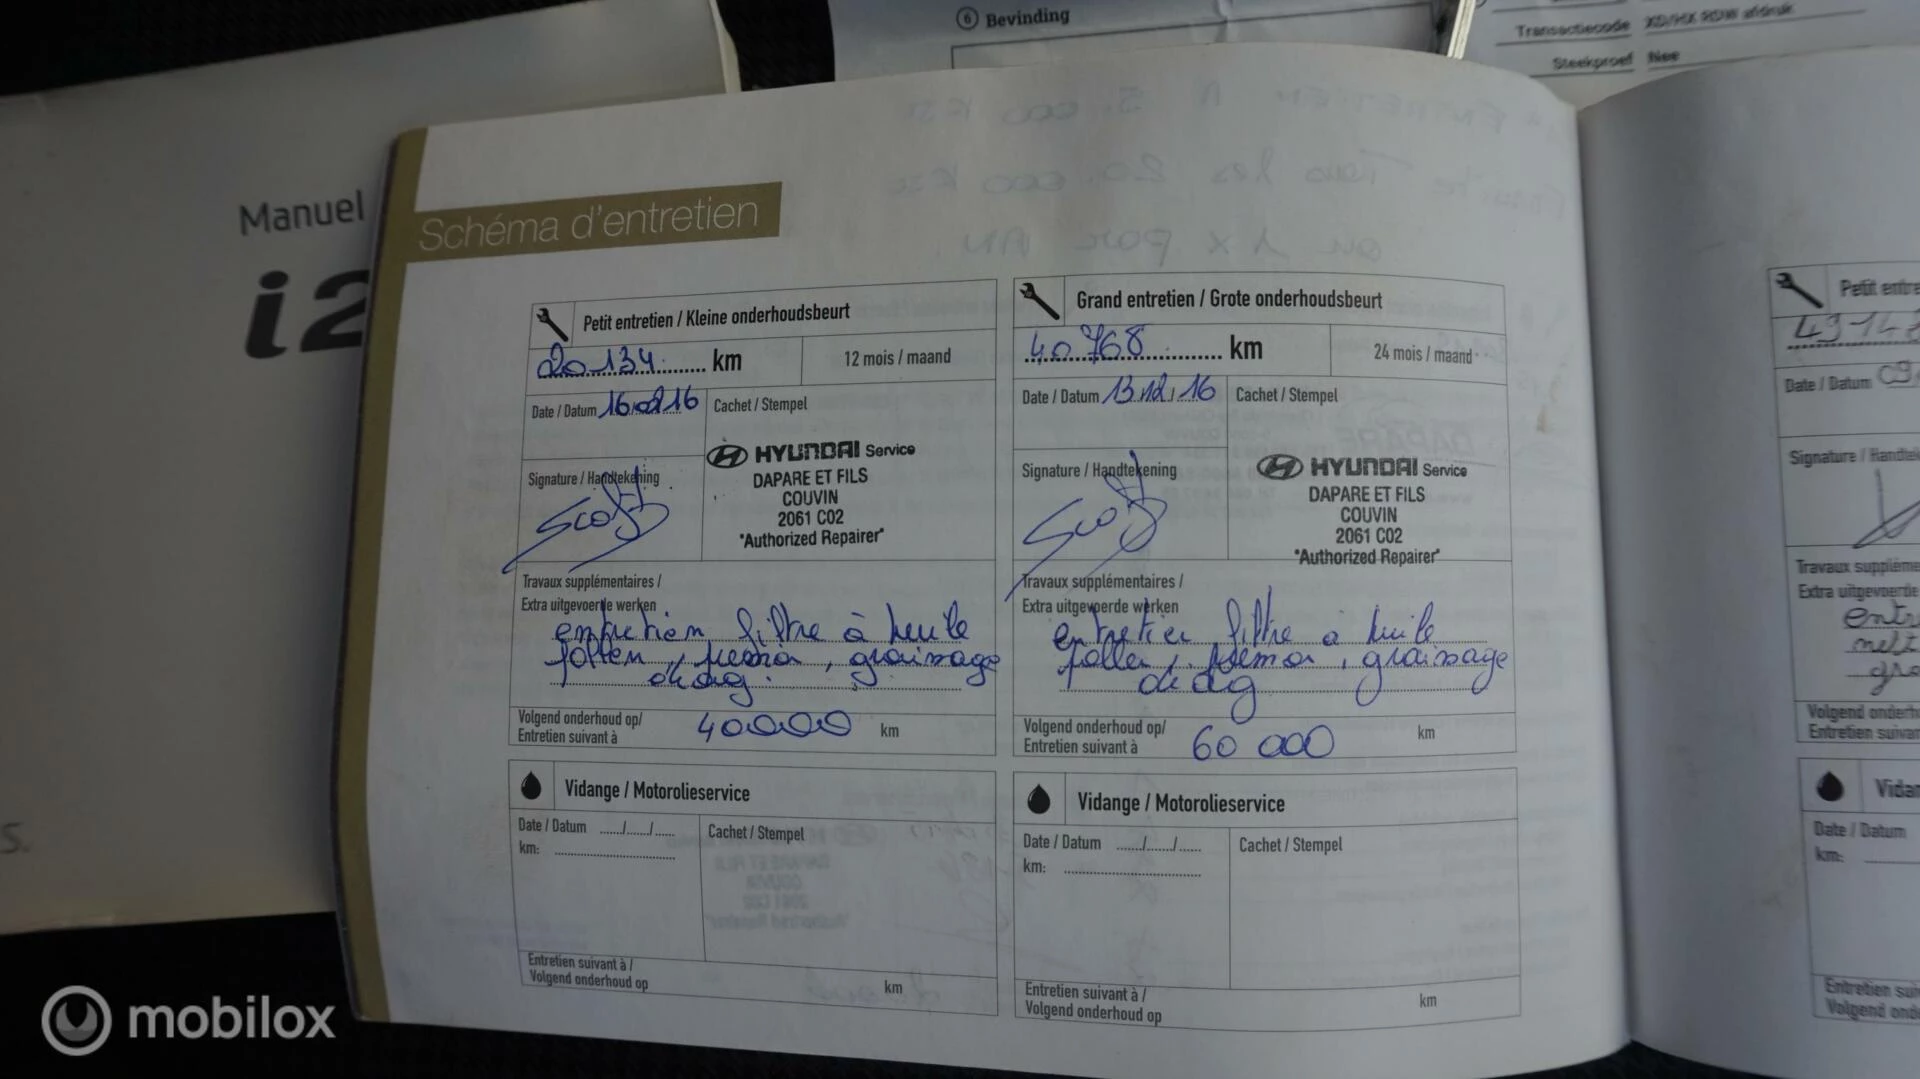 6 Bevinding
Transactiecode XD/HX RDW afdruk
Steekproef Nee
Manuel
i2
Schéma d'entretien
Petit entretien / Kleine onderhoudsbeurt
20.134 km
12 mois / maand
Date / Datum 16.02.16
Cachet / Stempel
HYUNDAI Service
DAPARE ET FILS
COUVIN
2061 C02
"Authorized Repairer"
Signature / Handtekening
Travaux supplémentaires /
Extra uitgevoerde werken
entretien, filtre à huile
pollen, , graissage
Volgend onderhoud op/
Entretien suivant à
40000 km
Vidange / Motorolieservice
Date / Datum ....../....../......
km:
Cachet / Stempel
Entretien suivant à /
Volgend onderhoud op
km
Grand entretien / Grote onderhoudsbeurt
40768 km
24 mois / maand
Date / Datum 13.12.16
Cachet / Stempel
HYUNDAI Service
DAPARE ET FILS
COUVIN
2061 C02
"Authorized Repairer"
Signature / Handtekening
Travaux supplémentaires /
Extra uitgevoerde werken
entretien filtre à huile
pollen, , graissage
Volgend onderhoud op/
Entretien suivant à
60 000 km
Vidange / Motorolieservice
Date / Datum ....../....../......
km:
Cachet / Stempel
Entretien suivant à /
Volgend onderhoud op
km
Petit entre
Date / Datum
Signature / Handte
Travaux supplém
Extra uitgevoerde
entr
Volgend onderh
Entretien suivan
Vidan
Date / Datum
km:
Entretien sui
Volgend ond
s.
mobilox